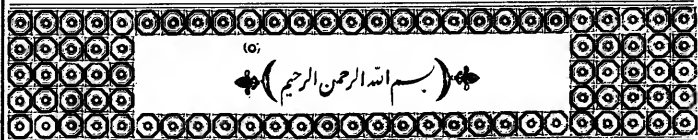 (۵)
بسم الله الرحمن الرحیم